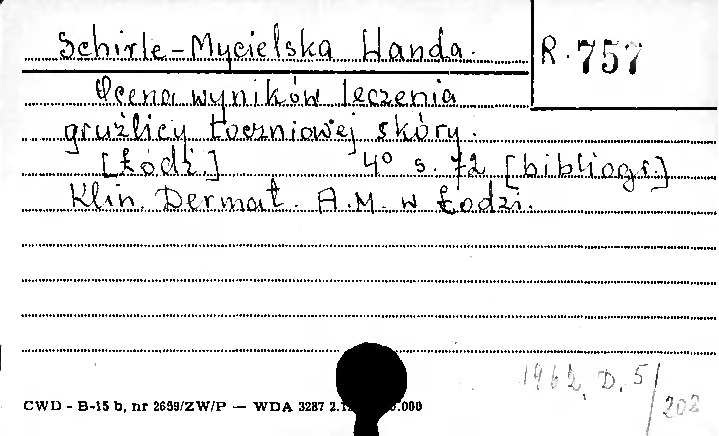 Schirle-Mycielska Wanda.
R. 757
Ocena wyników leczenia
gruźlicy toczniowej skóry.
[Łódź.] 4° s. 72 [bibliogr.]
Klin. Dermat. A.M. w Łodzi.
1962. D. 5/202
CWD - B-15 b, nr 2659/ZW/P — WDA 3287 2.1 .000